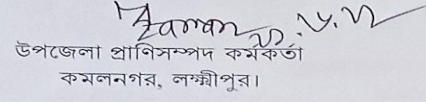 Zaman
উপজেলা প্রাণিসম্পদ কর্মকর্তা
কমলনগর, লক্ষ্মীপুর।